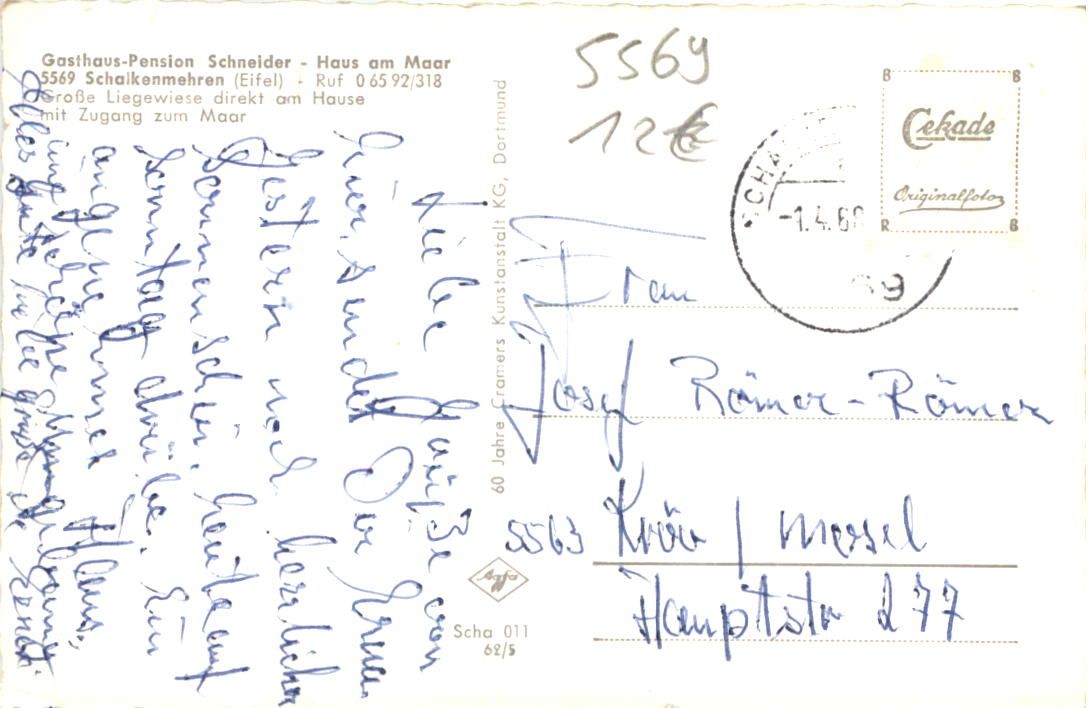 Gasthaus-Pension Schneider - Haus am Maar
5569 Schalkenmehren (Eifel) - Ruf 0 65 92/318
Große Liegewiese direkt am Hause
mit Zugang zum Maar
5569
12 €
SCHA
-1.4.6
Cekade
Originalfoto
B
B
R
B
60 Jahre Cramers Kunstanstalt KG, Dortmund
Liebe Grüße von
hier sendet Dir
Gestern noch herrlicher
Sonnenschein, heute auf
Sonntag trübe. Ein
angenehmes Haus,
und schöne
Alles Gute liebe Grüße
Frau
Josef Römer-Römer
5563 Kröv / Mosel
Hauptstr 277
Agfa
Scha 011
62/5